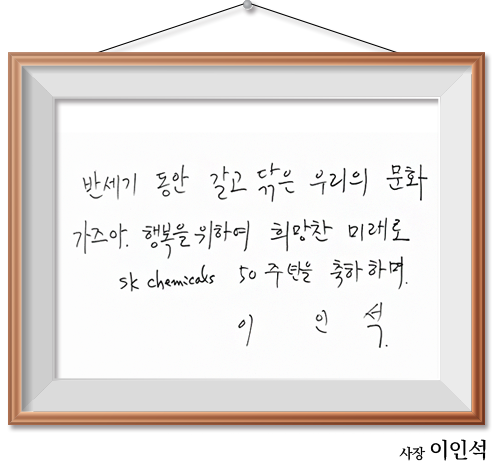 반세기 동안 갈고 닦은 우리의 문화
가즈아. 행복을 위하여 희망찬 미래로
sk chemicals 50주년을 축하하며.
이 인 석.
사장 이인석